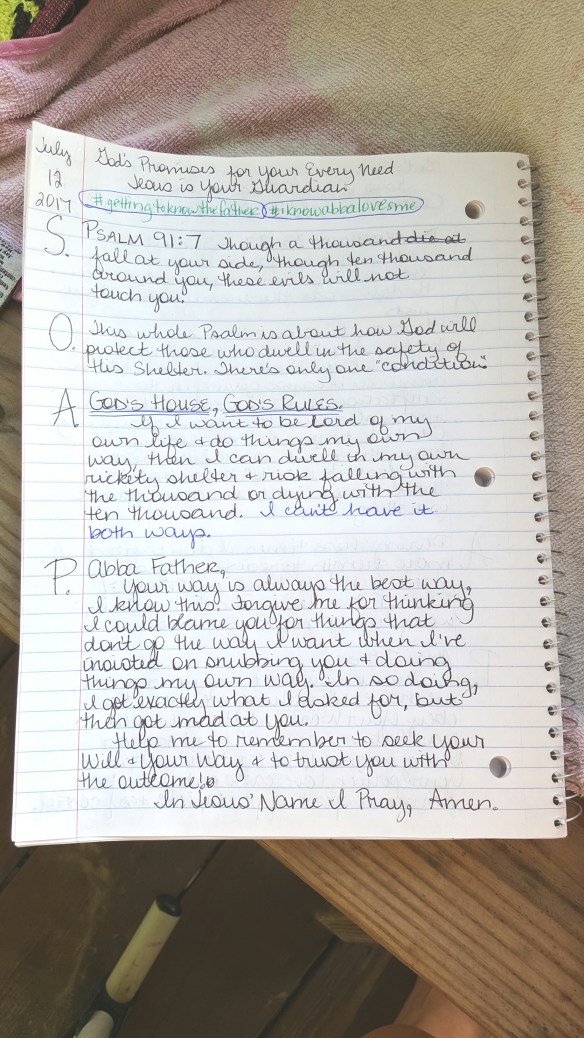 July
12
2017
God's Promises for Your Every Need
Jesus is Your Guardian
#gettingtoknowthefather #iknowabbalovesme
S. PSALM 91:7 Though a thousand die at
fall at your side, though ten thousand
around you, these evils will not
touch you.
O. This whole Psalm is about how God will
protect those who dwell in the safety of
His Shelter. There's only one "condition".
A GOD'S HOUSE, GOD'S RULES.
If I want to be Lord of my
own life + do things my own
way, then I can dwell in my own
rickety shelter + risk falling with
the thousand or dying with the
ten thousand. I can't have it
both ways.
P. Abba Father,
Your way is always the best way,
I know this. Forgive me for thinking
I could blame you for things that
don't go the way I want when I've
insisted on snubbing you + doing
things my own way. In so doing,
I got exactly what I asked for, but
then got mad at you.
Help me to remember to seek your
Will + Your Way + to trust you with
the outcome!
In Jesus' Name I Pray, Amen.